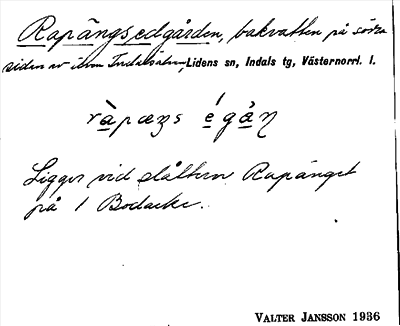 Rapängsedgården, bakvatten på södra
sidan av älven Indalsälven, Lidens sn, Indals tg, Västernorrl. l.
ràpæŋs égåη
Ligger vid slåttern Rapänget
på 1 Bodacke.
VALTER JANSSON 1936